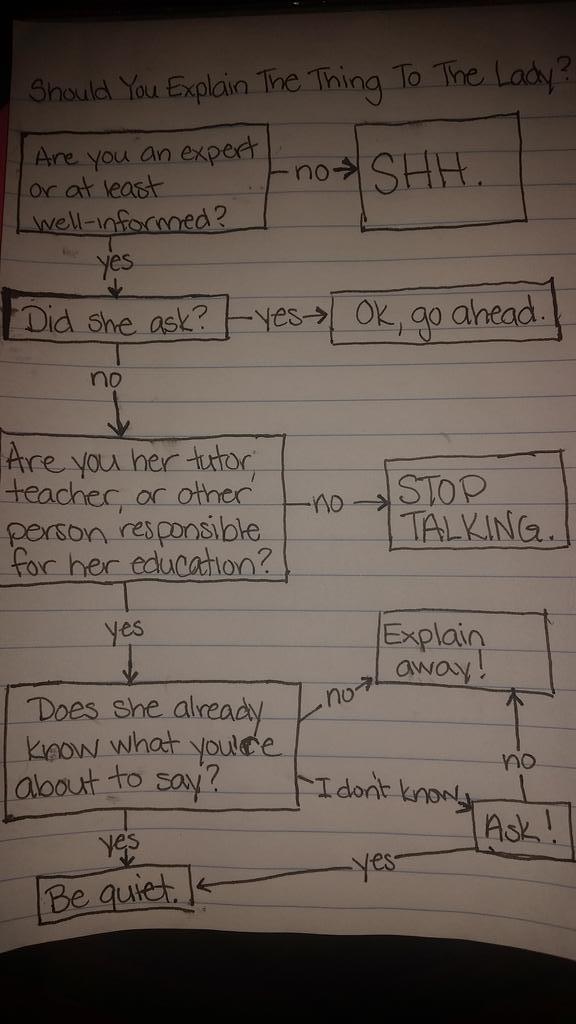 Should You Explain The Thing To The Lady?
Are you an expert
or at least
well-informed?
no
SHH.
yes
Did she ask?
yes
Ok, go ahead.
no
Are you her tutor,
teacher, or other
person responsible
for her education?
no
STOP
TALKING.
yes
Explain
away!
Does she already
know what you're
about to say?
no
no
I don't know
Ask!
yes
yes
Be quiet.